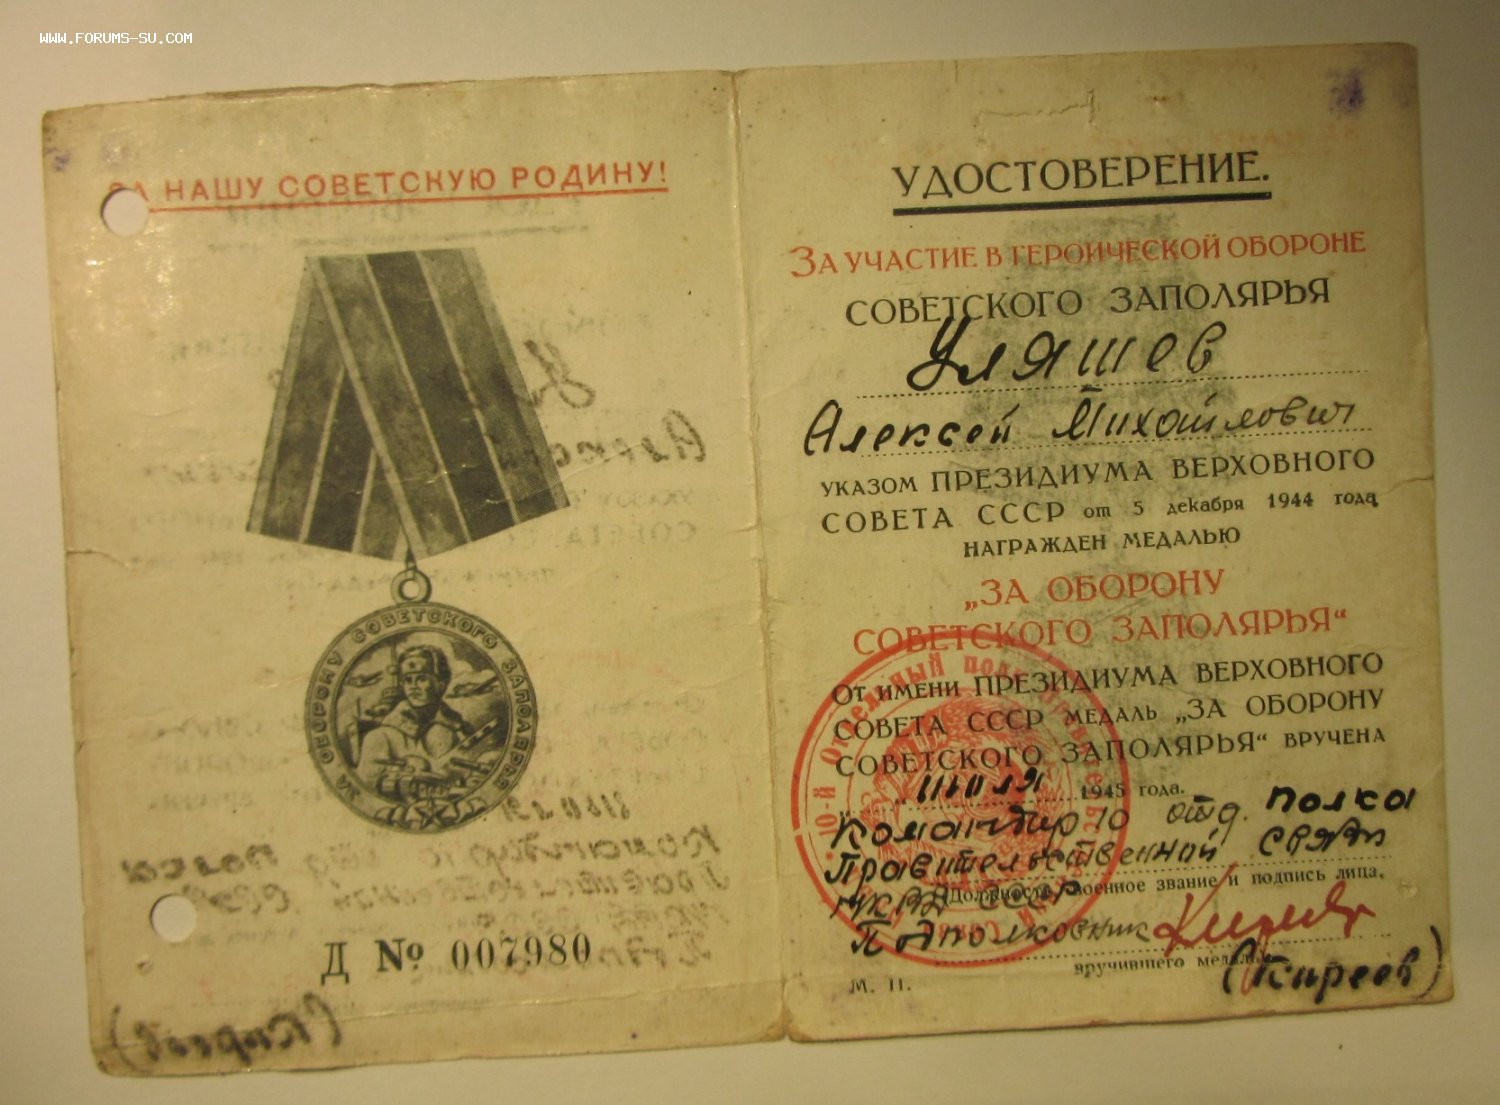 WWW.FORUMS-SU.COM
ЗА НАШУ СОВЕТСКУЮ РОДИНУ!
ЗА ОБОРОНУ СОВЕТСКОГО ЗАПОЛЯРЬЯ
Д № 007980
УДОСТОВЕРЕНИЕ.
ЗА УЧАСТИЕ В ГЕРОИЧЕСКОЙ ОБОРОНЕ
СОВЕТСКОГО ЗАПОЛЯРЬЯ
Уляшев
Алексей Михайлович
УКАЗОМ ПРЕЗИДИУМА ВЕРХОВНОГО
СОВЕТА СССР от 5 декабря 1944 года
НАГРАЖДЕН МЕДАЛЬЮ
„ЗА ОБОРОНУ
СОВЕТСКОГО ЗАПОЛЯРЬЯ“
ОТ ИМЕНИ ПРЕЗИДИУМА ВЕРХОВНОГО
СОВЕТА СССР МЕДАЛЬ „ЗА ОБОРОНУ
СОВЕТСКОГО ЗАПОЛЯРЬЯ“ ВРУЧЕНА
„ “ июля 1945 года.
Командир 10 отд. полка
Правительственной связи
НКВД СССР
(Должность, военное звание и подпись лица,
Подполковник Киреев
вручившего медаль)
(Киреев)
М. П.
10-й Отдельный полк